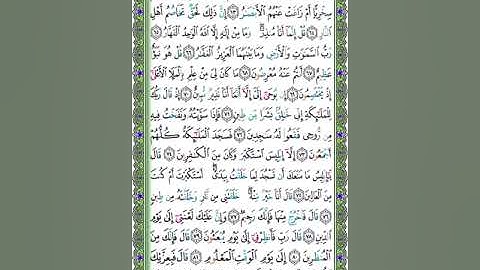 سِخْرِيًّا أَمْ زَاغَتْ عَنْهُمُ الْأَبْصَارُ ﴿٦٣﴾ إِنَّ ذَٰلِكَ لَحَقٌّ تَخَاصُمُ أَهْلِ
النَّارِ ﴿٦٤﴾ قُلْ إِنَّمَا أَنَا مُنْذِرٌ وَمَا مِنْ إِلَٰهٍ إِلَّا اللَّهُ الْوَاحِدُ الْقَهَّارُ ﴿٦٥﴾
رَبُّ السَّمَٰوَٰتِ وَالْأَرْضِ وَمَا بَيْنَهُمَا الْعَزِيزُ الْغَفَّارُ ﴿٦٦﴾ قُلْ هُوَ نَبَؤٌا
عَظِيمٌ ﴿٦٧﴾ أَنْتُمْ عَنْهُ مُعْرِضُونَ ﴿٦٨﴾ مَا كَانَ لِيَ مِنْ عِلْمٍ بِالْمَلَإِ الْأَعْلَىٰ
إِذْ يَخْتَصِمُونَ ﴿٦٩﴾ إِنْ يُوحَىٰ إِلَيَّ إِلَّا أَنَّمَا أَنَا نَذِيرٌ مُبِينٌ ﴿٧٠﴾ إِذْ قَالَ رَبُّكَ
لِلْمَلَٰئِكَةِ إِنِّي خَالِقٌ بَشَرًا مِنْ طِينٍ ﴿٧١﴾ فَإِذَا سَوَّيْتُهُ وَنَفَخْتُ فِيهِ
مِنْ رُوحِي فَقَعُوا لَهُ سَاجِدِينَ ﴿٧٢﴾ فَسَجَدَ الْمَلَٰئِكَةُ كُلُّهُمْ
أَجْمَعُونَ ﴿٧٣﴾ إِلَّا إِبْلِيسَ اسْتَكْبَرَ وَكَانَ مِنَ الْكَافِرِينَ ﴿٧٤﴾ قَالَ
يَا إِبْلِيسُ مَا مَنَعَكَ أَنْ تَسْجُدَ لِمَا خَلَقْتُ بِيَدَيَّ أَسْتَكْبَرْتَ أَمْ كُنْتَ
مِنَ الْعَالِينَ ﴿٧٥﴾ قَالَ أَنَا خَيْرٌ مِنْهُ خَلَقْتَنِي مِنْ نَارٍ وَخَلَقْتَهُ مِنْ طِينٍ
﴿٧٦﴾ قَالَ فَاخْرُجْ مِنْهَا فَإِنَّكَ رَجِيمٌ ﴿٧٧﴾ وَإِنَّ عَلَيْكَ لَعْنَتِي إِلَىٰ يَوْمِ
الدِّينِ ﴿٧٨﴾ قَالَ رَبِّ فَأَنْظِرْنِي إِلَىٰ يَوْمِ يُبْعَثُونَ ﴿٧٩﴾ قَالَ فَإِنَّكَ مِنَ
الْمُنْظَرِينَ ﴿٨٠﴾ إِلَىٰ يَوْمِ الْوَقْتِ الْمَعْلُومِ ﴿٨١﴾ قَالَ فَبِعِزَّتِكَ